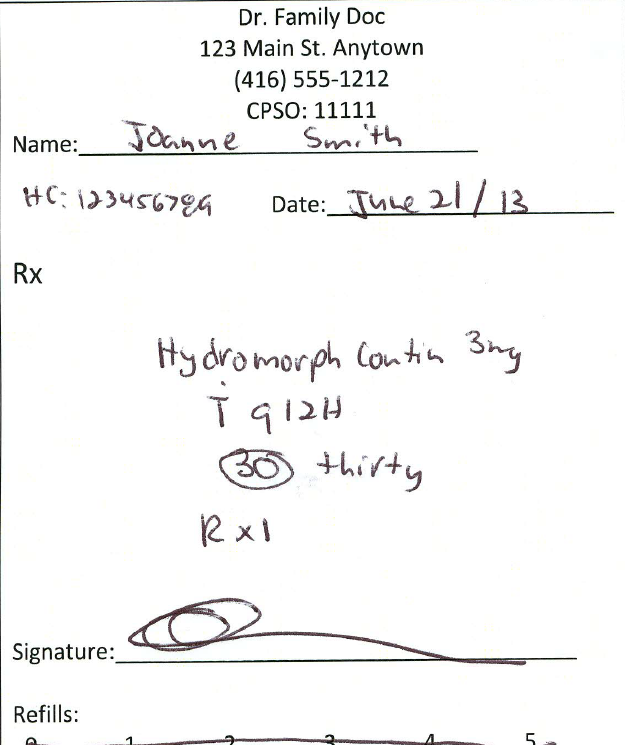 Dr. Family Doc
123 Main St. Anytown
(416) 555-1212
CPSO: 11111
Name: Joanne Smith
HC: 123456789 Date: June 21/13
Rx
Hydromorph Contin 3mg
T q12H
30 thirty
R x1
Signature:
Refills:
0 1 2 3 4 5